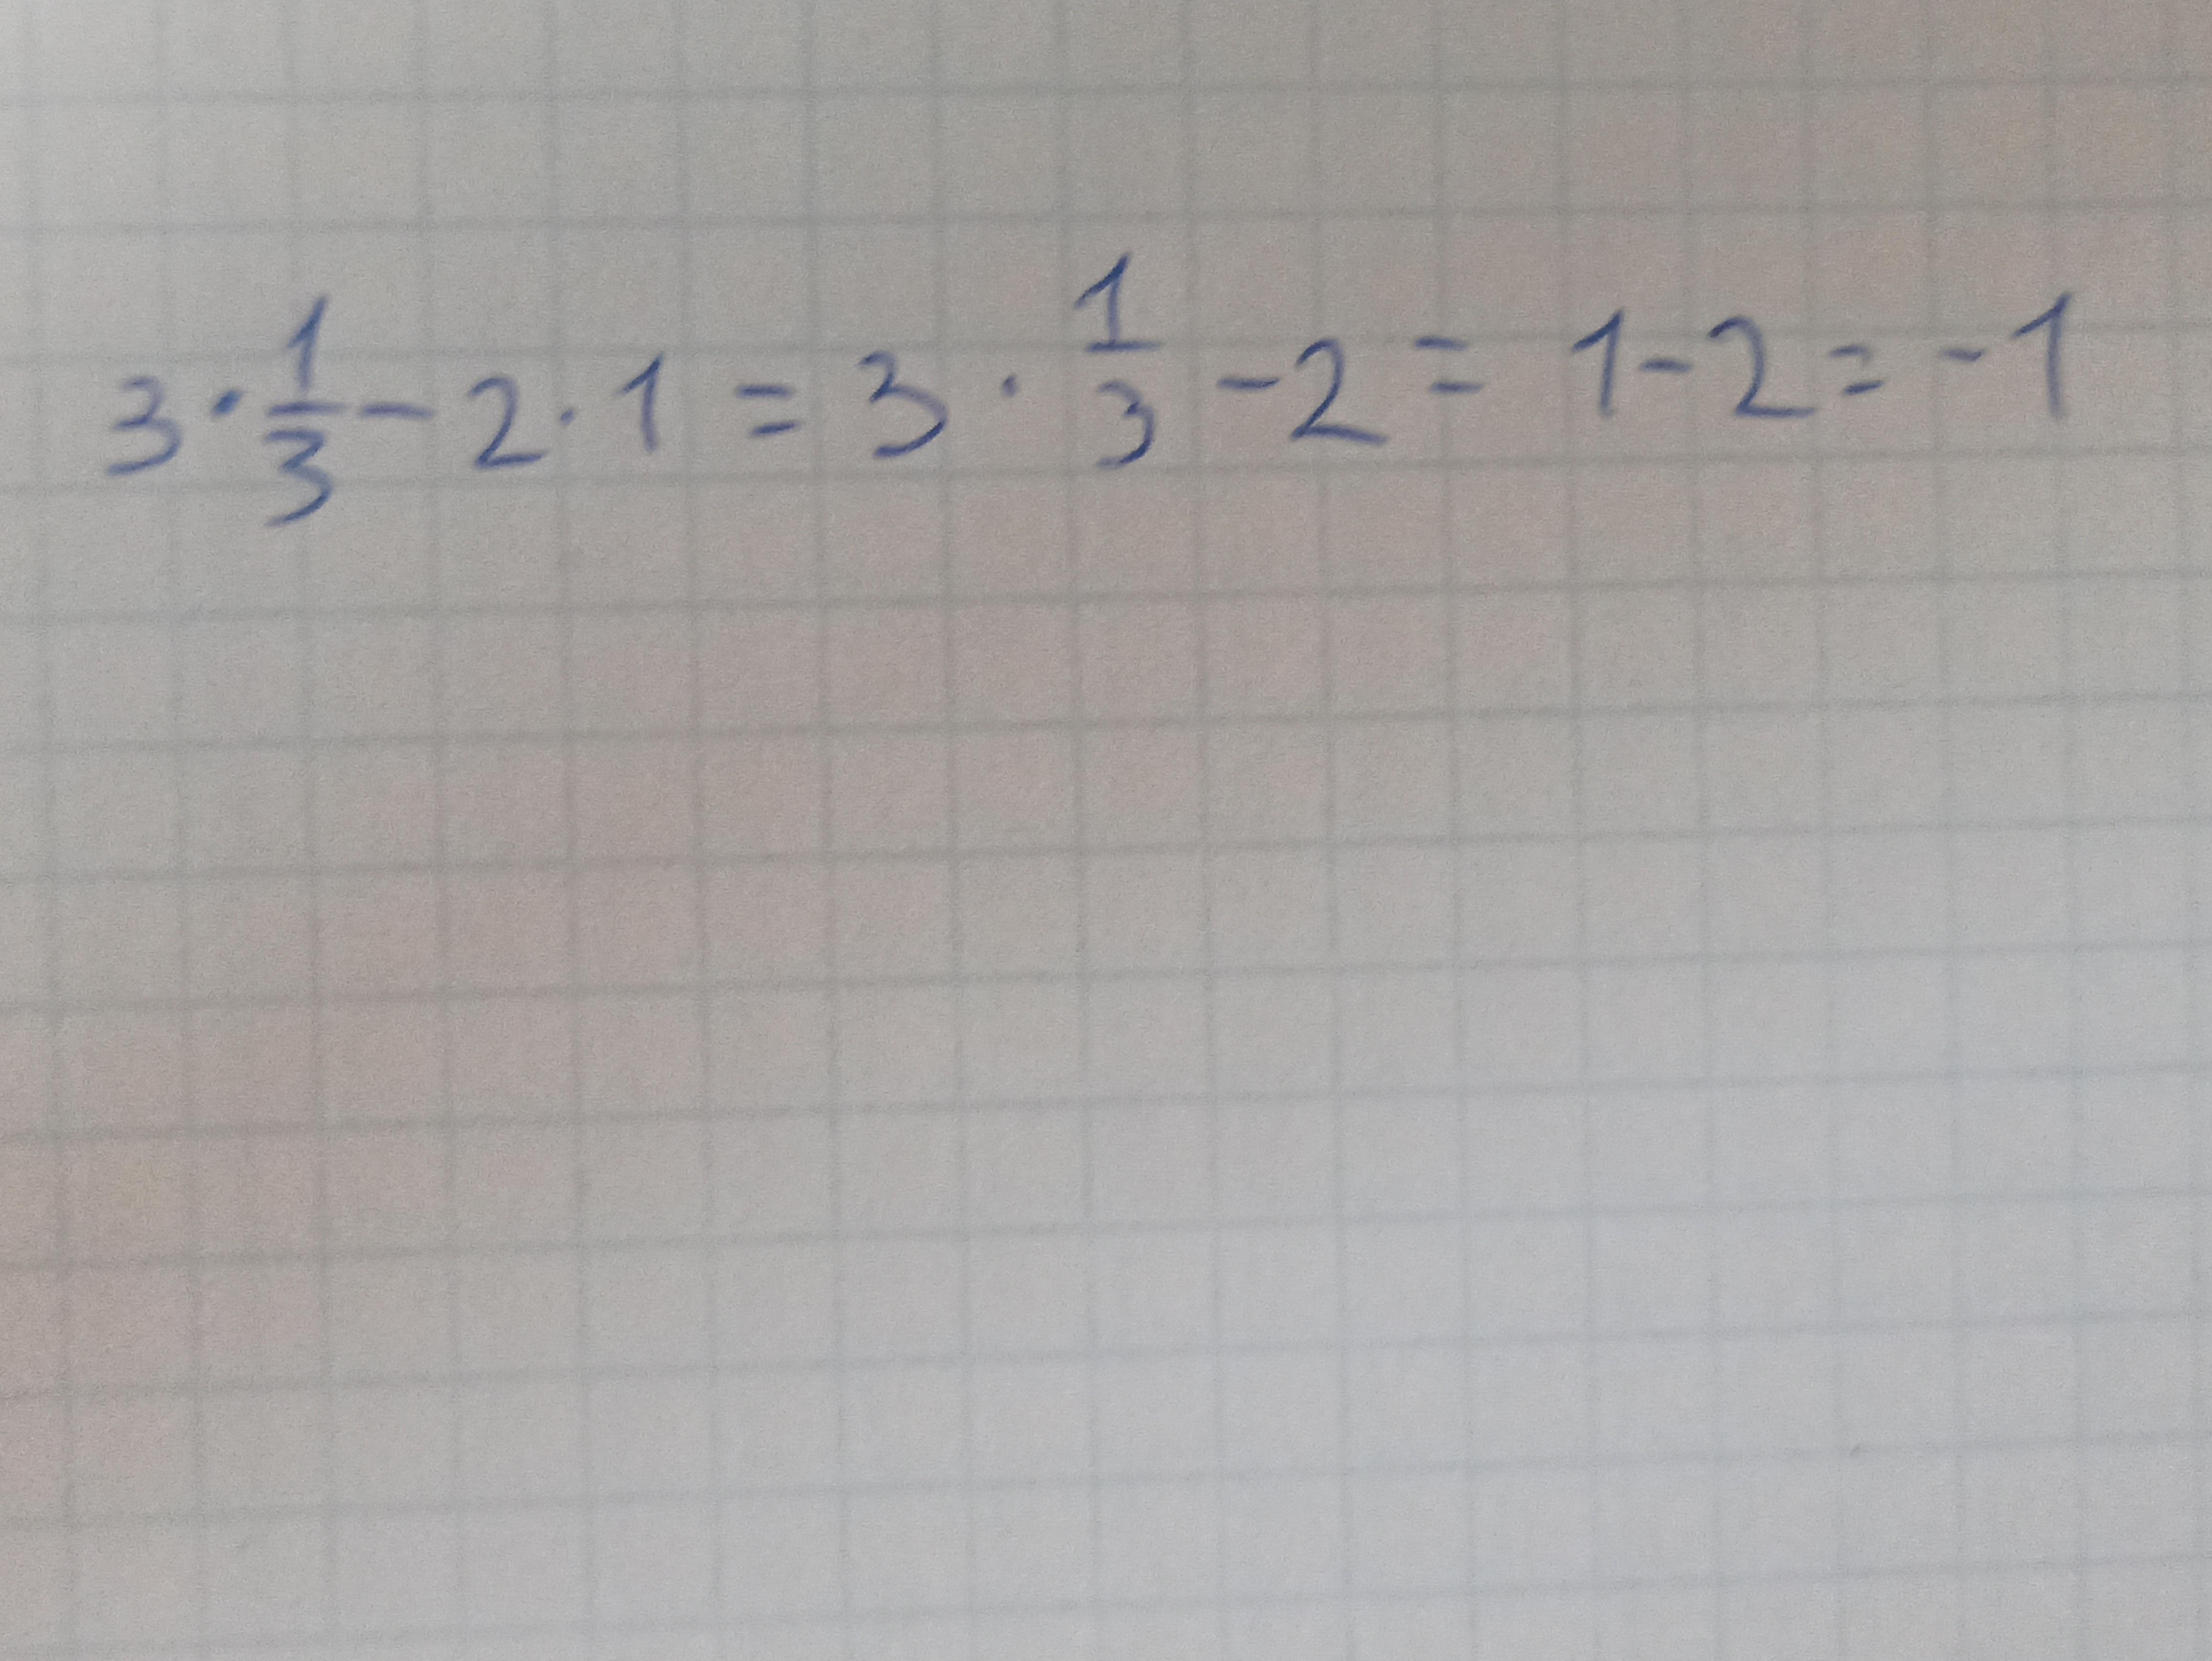 3 · 1/3 - 2 · 1 = 3 · 1/3 - 2 = 1 - 2 = -1